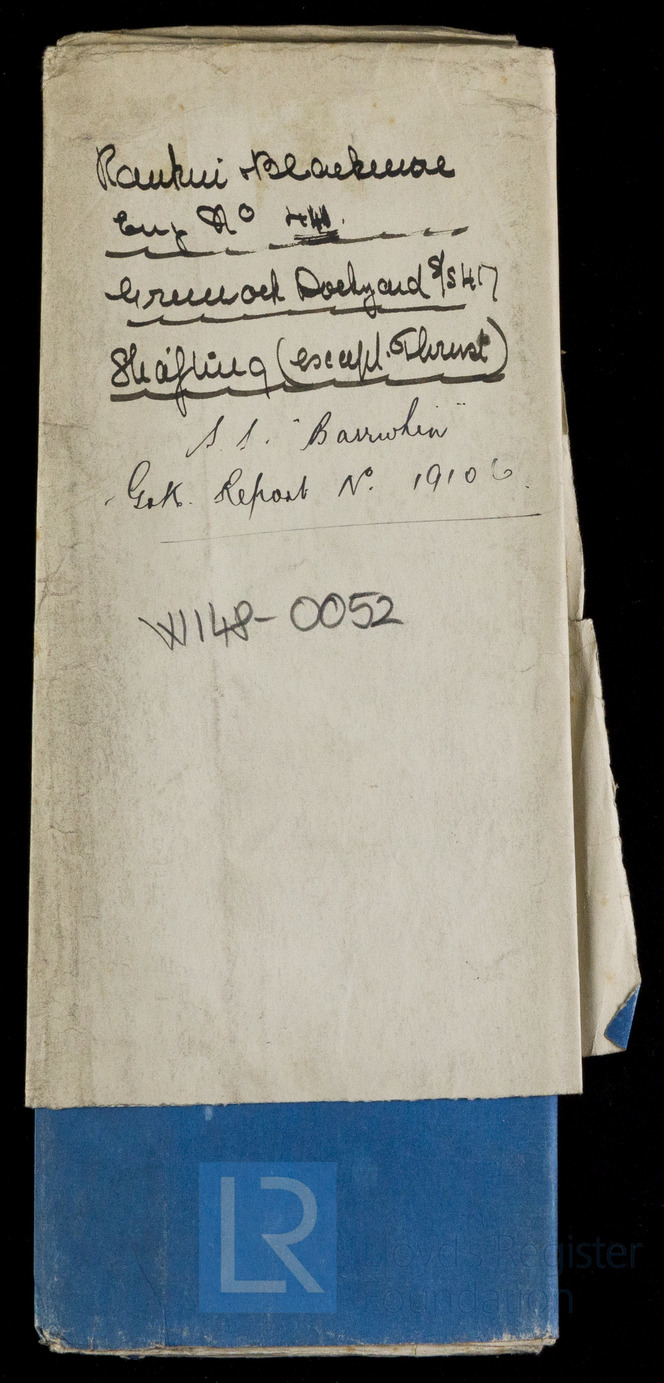 Rankin & Blackmore
Eng No 441.
Greenock Dockyard S/S 417
Shafting (except. Thrust)
S.S. "Barrwhin"
Grk. Report No. 19106.
W148-0052
LR
Lloyd's Register
Foundation